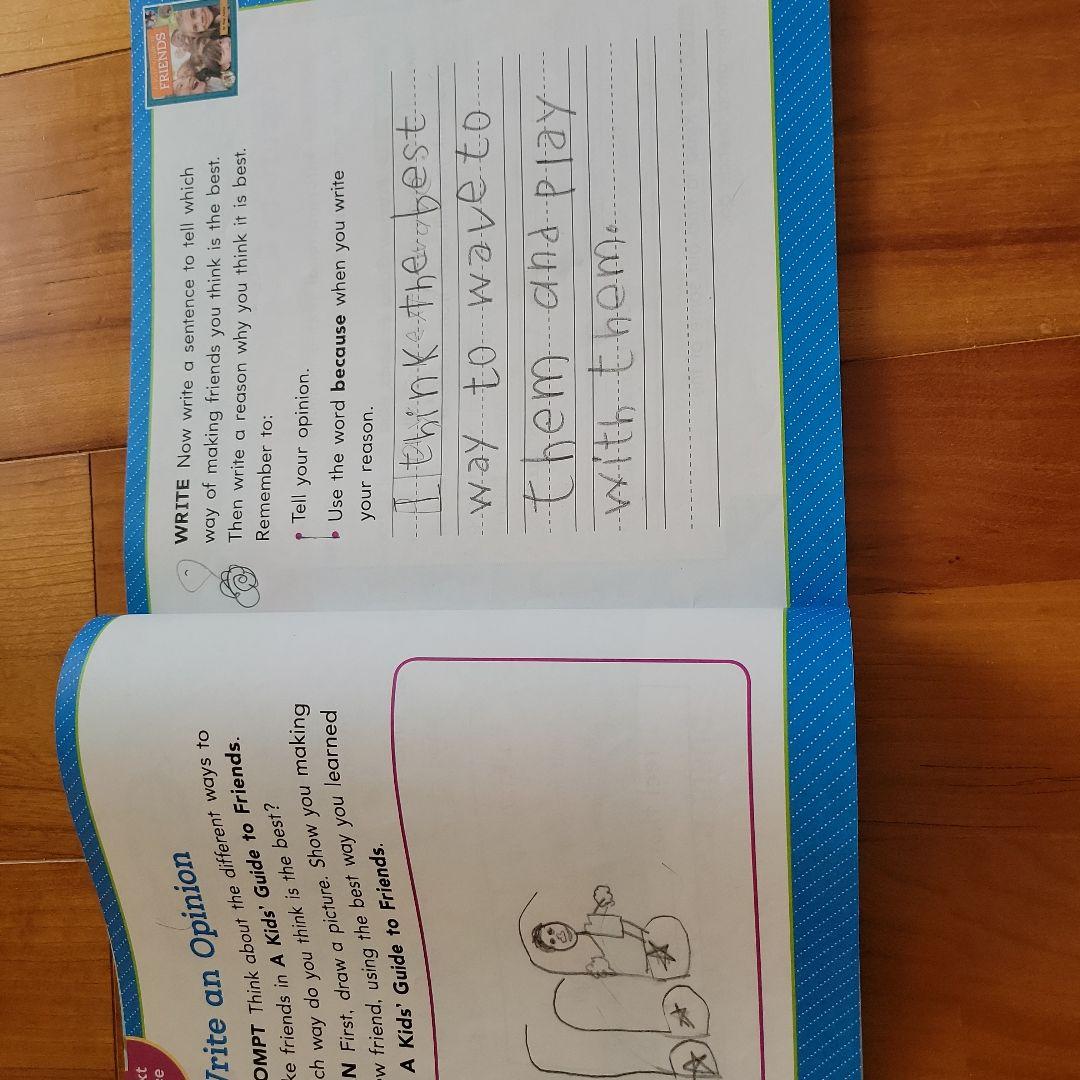 Write an Opinion
OMPT Think about the different ways to
ke friends in A Kids' Guide to Friends.
ch way do you think is the best?
N First, draw a picture. Show you making
w friend, using the best way you learned
A Kids' Guide to Friends.
FRIENDS
WRITE Now write a sentence to tell which
way of making friends you think is the best.
Then write a reason why you think it is best.
Remember to:
• Tell your opinion.
• Use the word because when you write
your reason.
I think the best
way to wave to
them and play
with them.